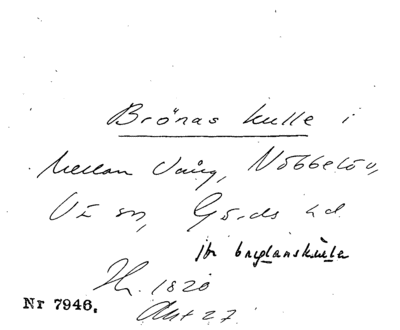 Brönas kulle i
Mellan Vång, Nöbbelöv,
Vä sn, Gärds hd.
jfr
Hr. 1820
Akt 27
Nr 7946.